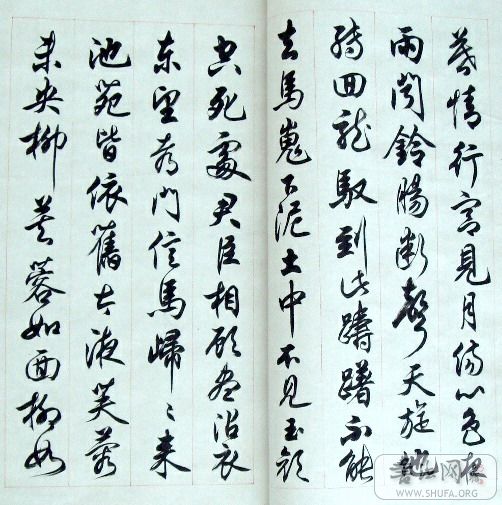 暮情行宮見月傷心色夜
雨聞鈴腸斷聲天旋地
轉回龍馭到此躊躇不能
去馬嵬下泥土中不見玉顏
空死處君臣相顧盡沾衣
東望都門信馬歸〻来
池苑皆依舊太液芙蓉
未央柳芙蓉如面柳如
WWW.SHUFA.ORG